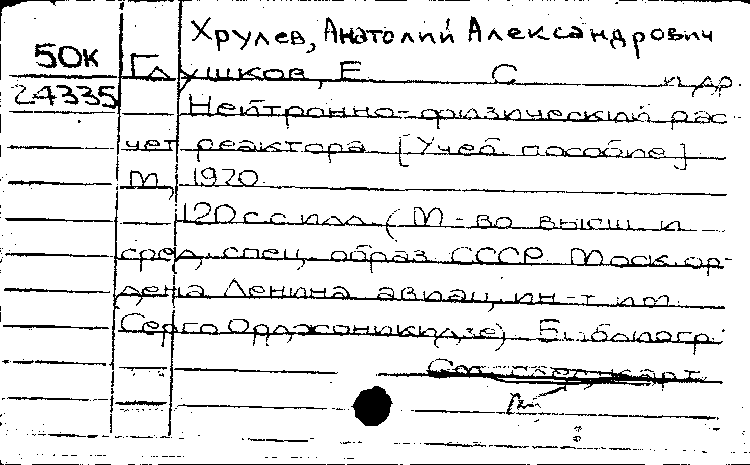 Хрулев, Анатолий Александрович
50К Глушков, Е С и др.
24335 Нейтронно-физический рас-
чет реактора [Учеб. пособие]
М, 1970
120 с с илл. (М-во высш и
сред, спец, образ СССР. Моск ор-
дена Ленина авиац, ин-т им.
Серго Орджоникидзе) Библиогр:
См. след. карт.